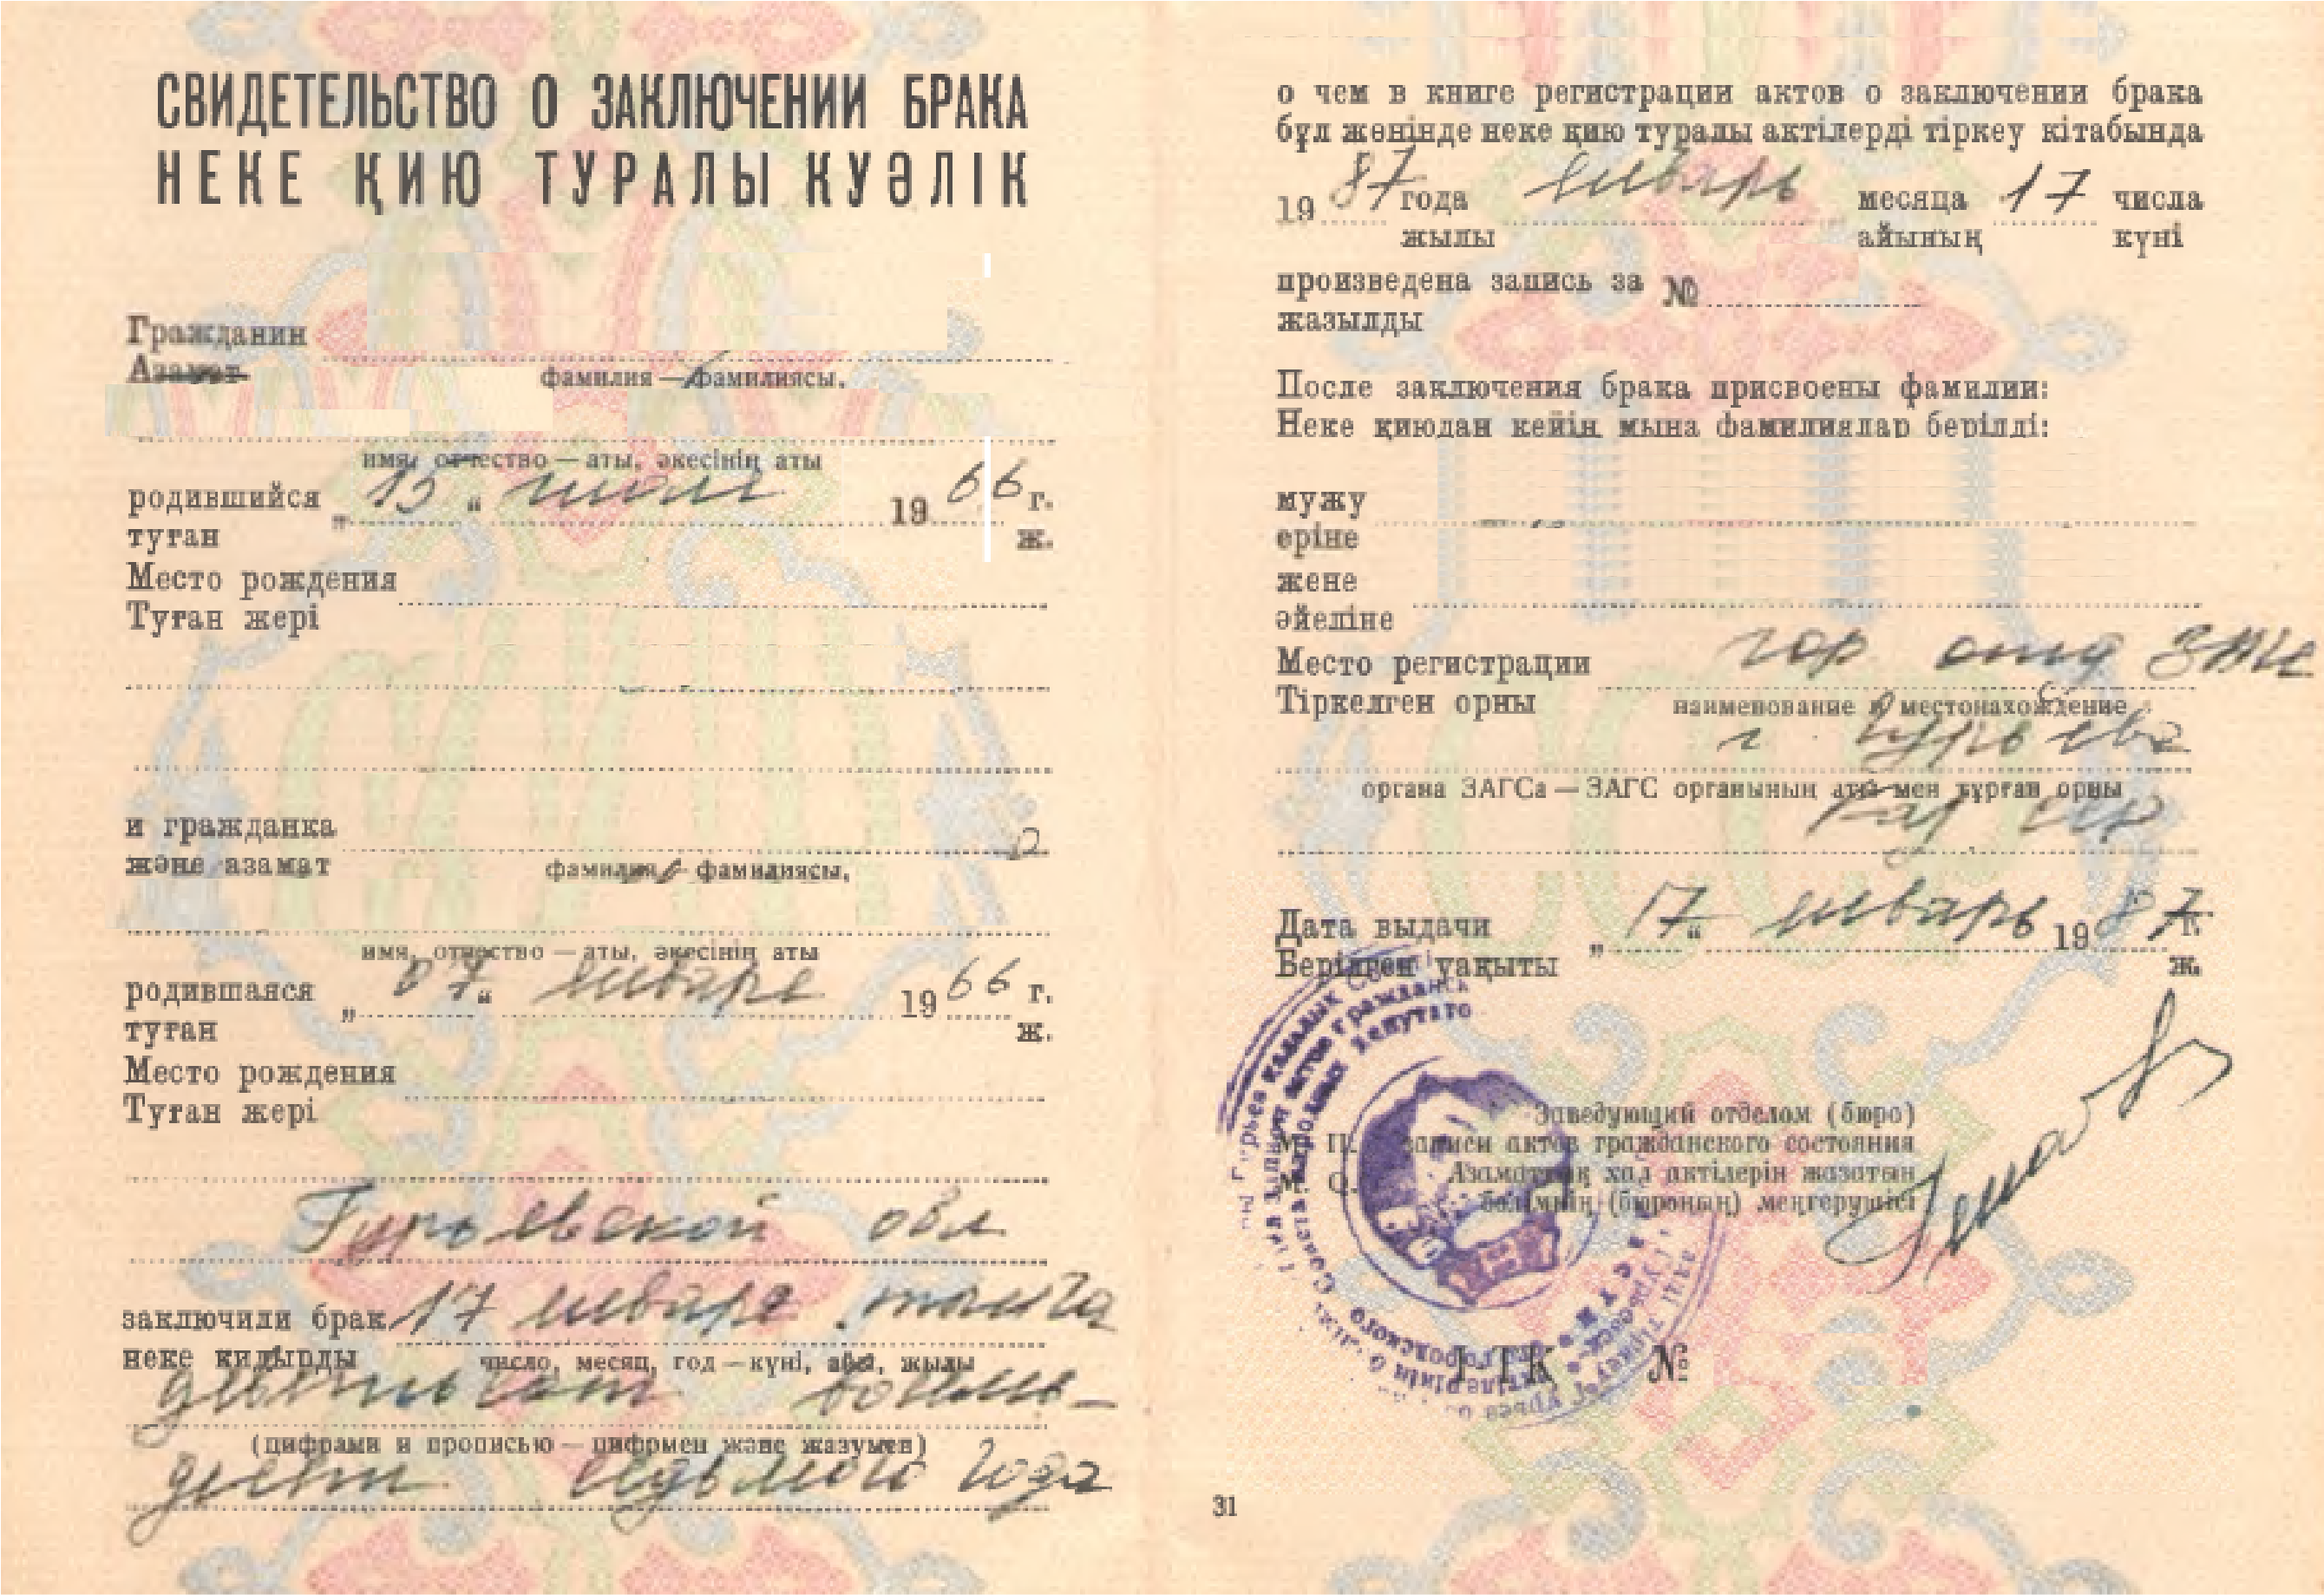 СВИДЕТЕЛЬСТВО О ЗАКЛЮЧЕНИИ БРАКА
НЕКЕ ҚИЮ ТУРАЛЫ КУӘЛІК
Гражданин
Азамат
фамилия — фамилиясы,
имя, отчество — аты, әкесінің аты
родившийся „ 15 “ июля 19 66 г.
туған ж.
Место рождения
Туған жері
и гражданка
және азамат фамилия — фамилиясы,
имя, отчество — аты, әкесінің аты
родившаяся „ 07 “ января 19 66 г.
туған ж.
Место рождения
Туған жері
Гурьевской обл
заключили брак 17 января тысяча
неке қидырды число, месяц, год — күні, айы, жылы
девятьсот восемь-
(цифрами и прописью — цифрмен және жазумен)
десят седьмого года
о чем в книге регистрации актов о заключении брака
бұл жөнінде неке қию туралы актілерді тіркеу кітабында
19 87 года январь месяца 17 числа
жылы айының күні
произведена запись за №
жазылды
После заключения брака присвоены фамилии:
Неке қиюдан кейін мына фамилиялар берілді:
мужу
еріне
жене
әйеліне
Место регистрации гор отд ЗАГС
Тіркелген орны наименование и местонахождение
г. Гурьева
органа ЗАГСа — ЗАГС органының аты мен тұрған орны
Дата выдачи „ 17 “ январь 19 87 г.
Берілген уақыты ж.
Заведующий отделом (бюро)
М. П. записи актов гражданского состояния
М. О. Азаматтық хал актілерін жазатын
бөлімнің (бюроның) меңгерушісі
І-ТК №
31